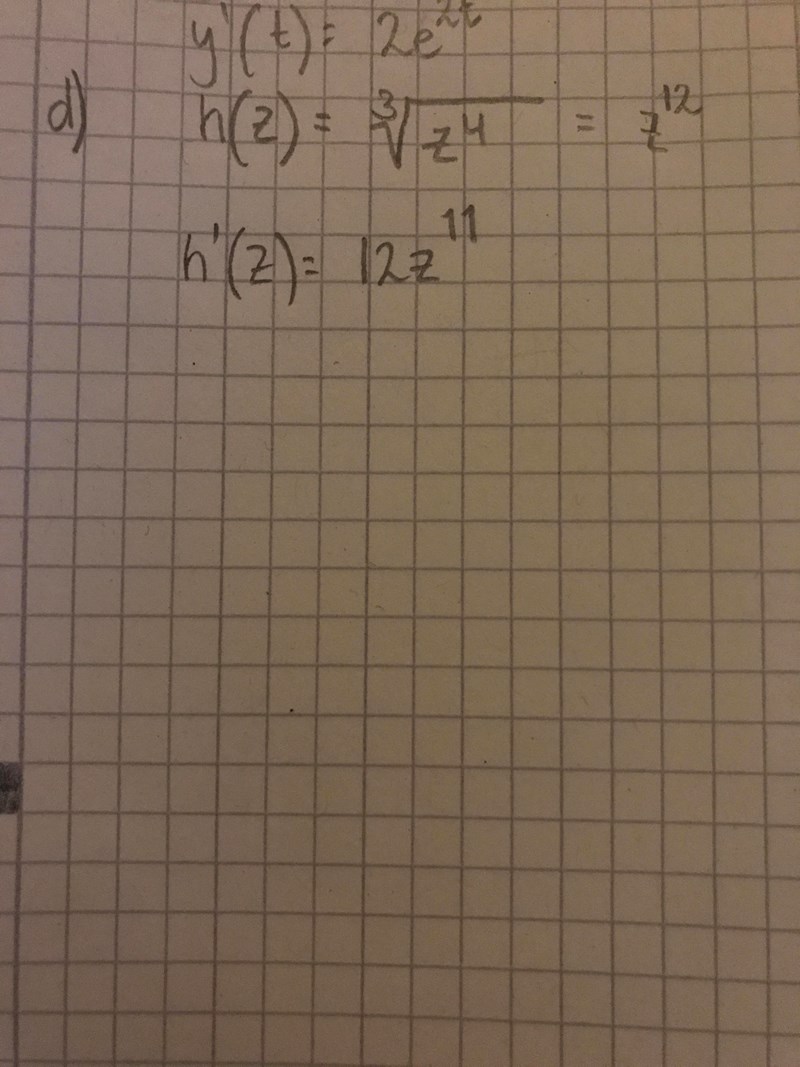 y'(t) = 2e^2t
d) h(z) = ∛z⁴ = z¹²
h'(z) = 12z¹¹